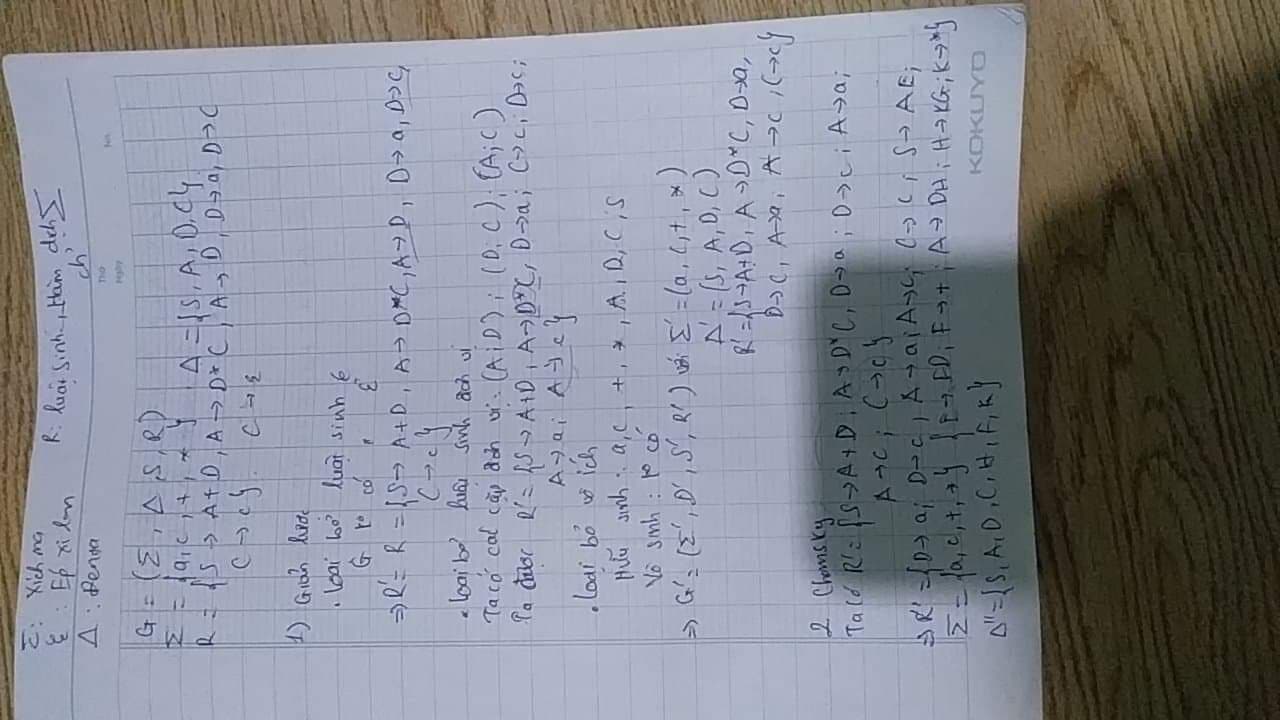 Σ: Xích ma
R: luật sinh, Hàm đích Σ
ε: Ép xi lon
chữ
Δ: Denta
G = (Σ, Δ, S, R)
Σ = {a, c, +, * }
Δ = {S, A, D, C}
R = {S → A+D, A → D*C, A → D, D → a, D → C
C → c}. C → ε
1) Giản lược
• Loại bỏ luật sinh ε
G ko có ε
⇒ R' = R = {S → A+D, A → D*C, A → D, D → a, D → C,
C → c}
• Loại bỏ luật sinh đơn vị
Ta có các cặp đơn vị: (A; D); (D, C); (A; C)
Ta được R' = {S → A+D, A → D*C, D → a; C → c; D → c;
A → a; A → c}
• Loại bỏ vô ích
Hữu sinh: a, c, +, *, A, D, C, S
Vô sinh: ko có
⇒ G' = (Σ', Δ', S', R') với Σ' = (a, c, +, *)
Δ' = (S, A, D, C)
R' = {S → A+D, A → D*C, D → a,
D → c, A → a, A → c, C → c}
2. Chomsky
Ta có R' = {S → A+D; A → D*C, D → a; D → c; A → a;
A → c; C → c}
⇒ R'' = {D → a; D → c; A → a; A → c; C → c; S → AE;
Σ = {a, c, +, *} E → FD; F → +; A → DH; H → KG; K → *}
Δ'' = {S, A, D, C, H, F, K}
KOKUYO